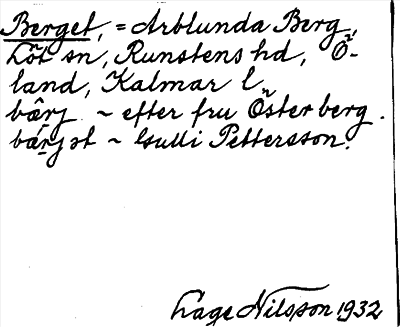 Berget, = Arblunda Berg,
Löt sn, Runstens hd, Ö-
land, Kalmar l.
bærj ~ efter fru Österberg.
bærjət ~ Gulli Pettersson.
Lage Nilsson 1932